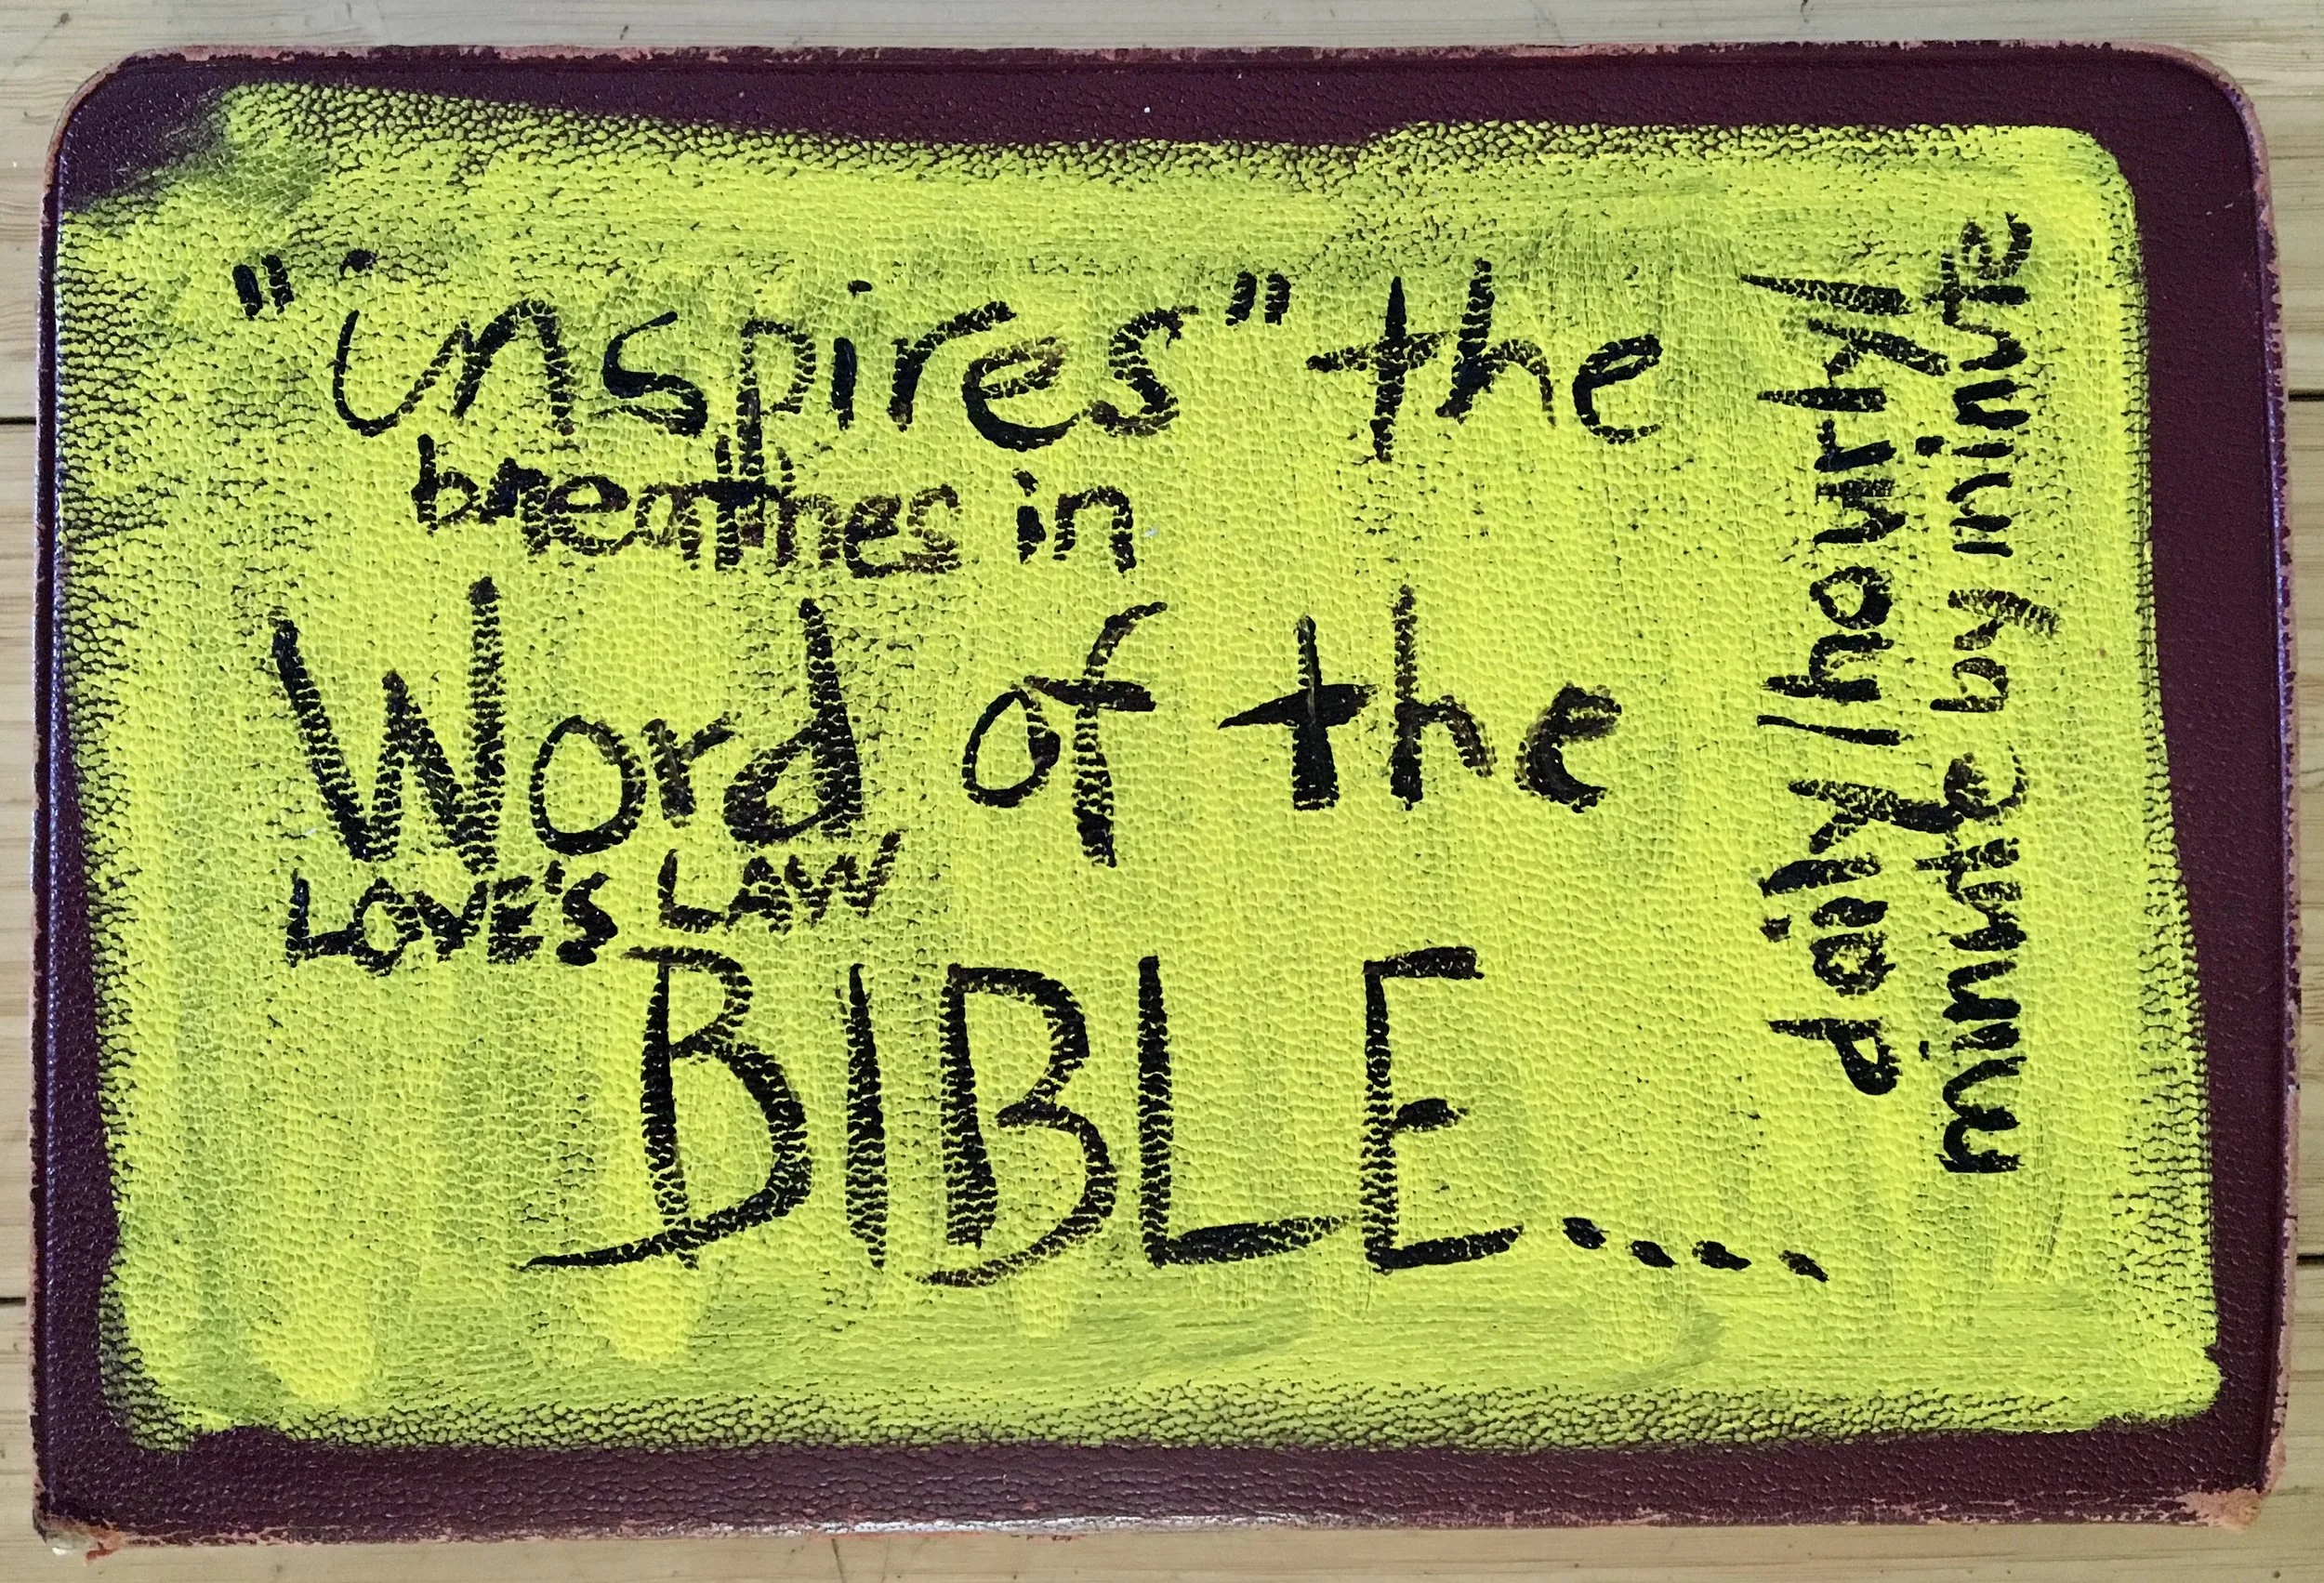 "inspires" the
breathes in
Word of the
LOVE'S LAW
BIBLE....
daily/hourly/
minute by minute